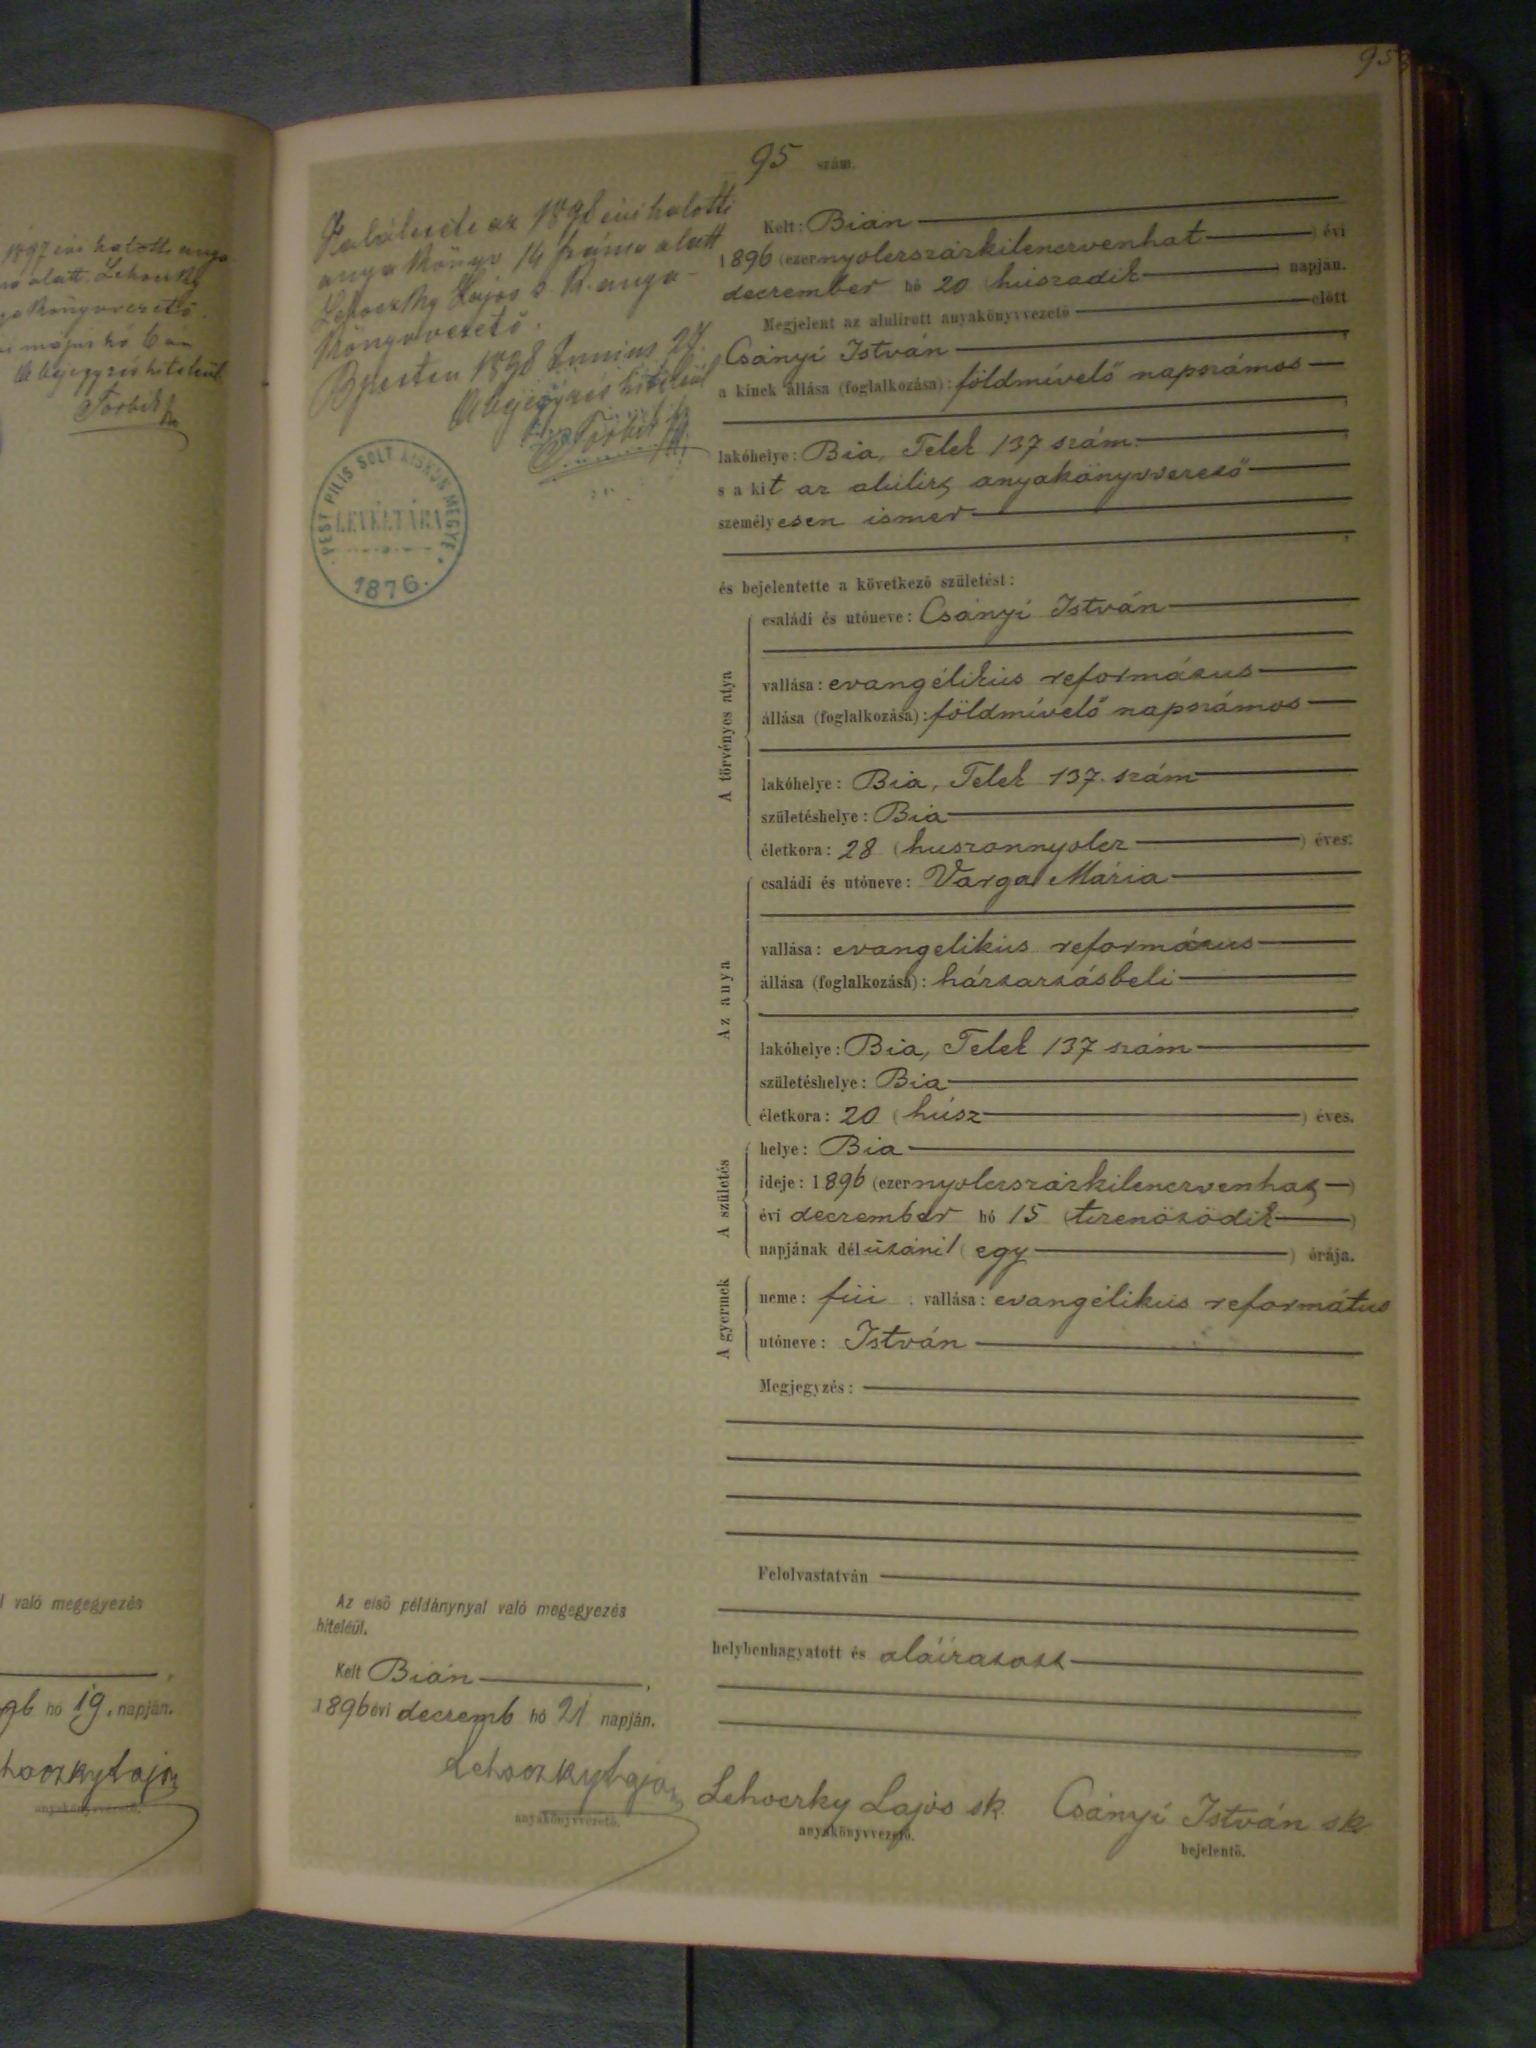 95
95 szám.
1897 évi halotti anya
alatt. Lehoczky
könyvvezető.
május hó 6 án
A bejegyzés hiteléül
Torbik
való megegyezés
hó 19. napján.
anyakönyvvezető.
Halálesete az 1898 évi halotti
anyakönyv 14 száma alatt
Lehoczky Lajos s. k. anya-
könyvvezető.
Bpesten 1898 Junius 27.
A bejegyzés hiteléül
Torbik
PEST PILIS SOLT KISKUN MEGYE
LEVÉLTÁRA
1876.
Kelt: Bián
1896 (ezernyolczszázkilenczvenhat ) évi
deczember hó 20 (húszadik ) napján.
Megjelent az alulirott anyakönyvvezető előtt
Csányi István
a kinek állása (foglalkozása): földmívelő napszámos
lakóhelye: Bia, Telek 137 szám.
s a kit az alulirt anyakönyvvezető
személyesen ismer
és bejelentette a következő születést:
A törvényes atya
családi és utóneve: Csányi István
vallása: evangélikus református
állása (foglalkozása): földmívelő napszámos
lakóhelye: Bia, Telek 137. szám
születéshelye: Bia
életkora: 28 (huszonnyolcz ) éves.
Az anya
családi és utóneve: Varga Mária
vallása: evangelikus református
állása (foglalkozása): háztartásbeli
lakóhelye: Bia, Telek 137 szám
születéshelye: Bia
életkora: 20 (húsz ) éves.
A születés
helye: Bia
ideje: 1896 (ezernyolczszázkilenczvenhat )
évi deczember hó 15 (tizenötödik )
napjának délutáni (egy ) órája.
A gyermek
neme: fiú ; vallása: evangélikus református
utóneve: István
Megjegyzés:
Felolvastatván
helybenhagyatott és aláiratott
Az első példánynyal való megegyezés
hiteléül.
Kelt Bián ,
1896 évi deczemb hó 21 napján.
Lehoczky Lajos
anyakönyvvezető.
Lehoczky Lajos sk
anyakönyvvezető.
Csányi István sk
bejelentő.